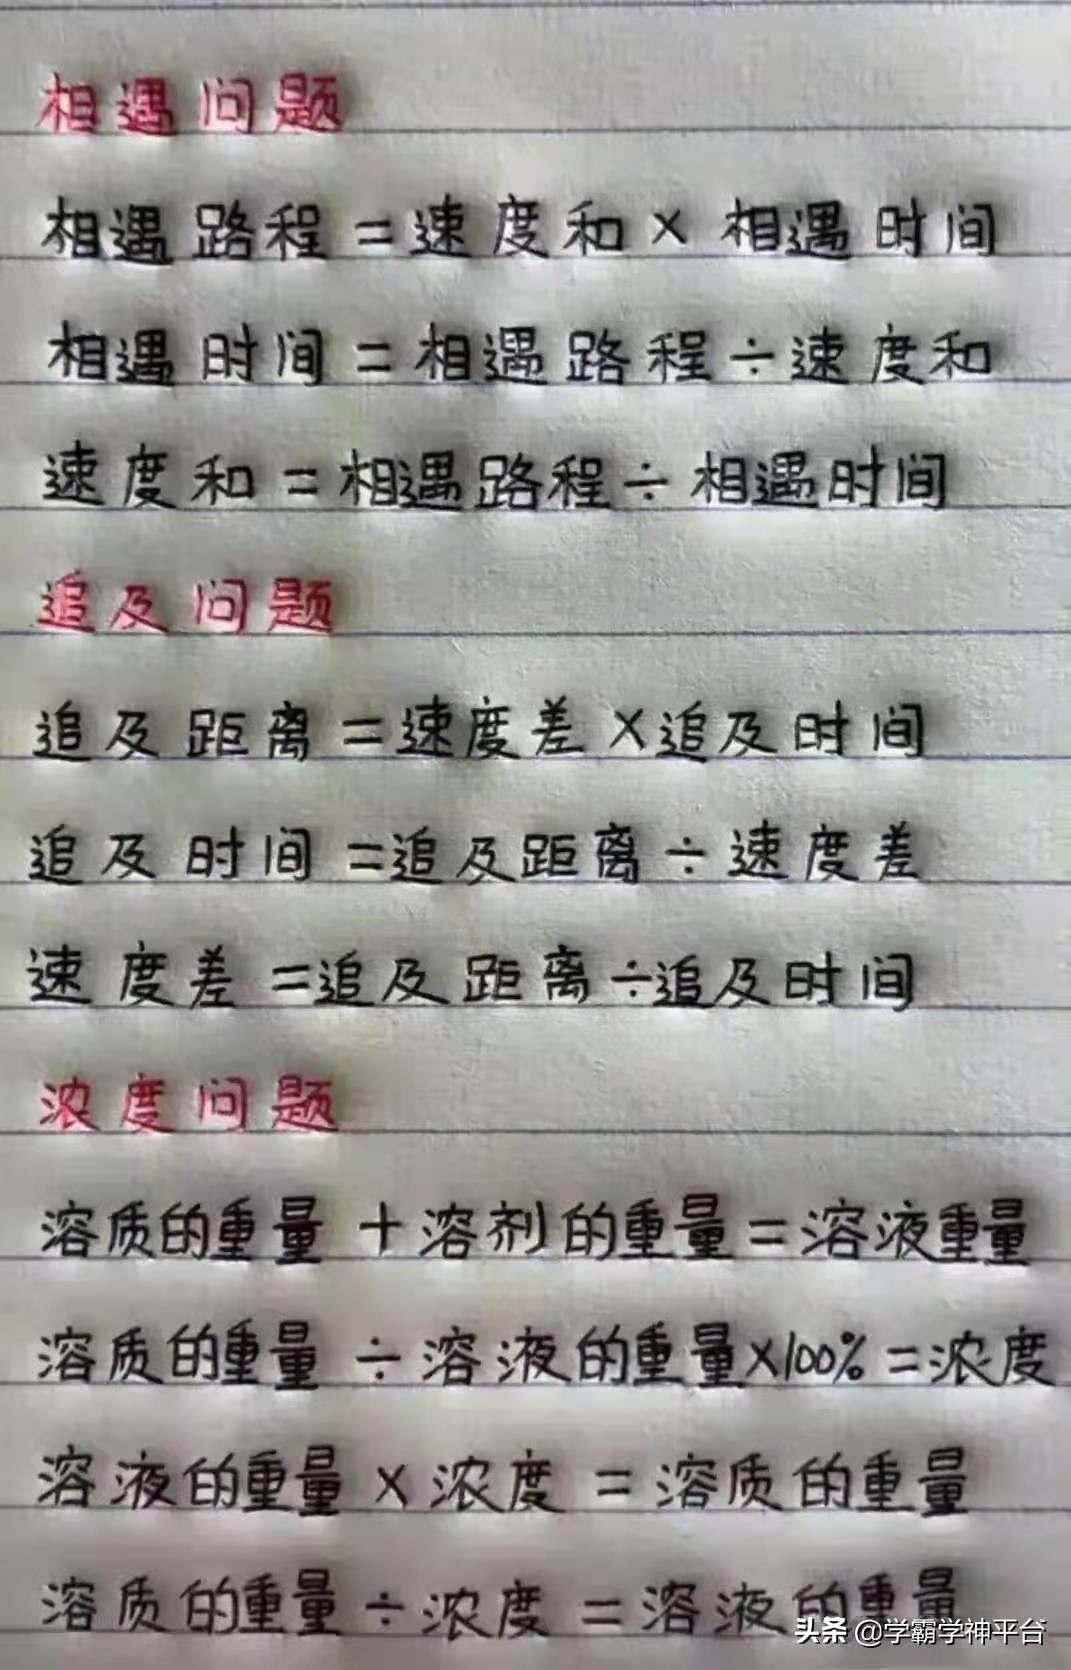 相遇问题
相遇路程=速度和×相遇时间
相遇时间=相遇路程÷速度和
速度和=相遇路程÷相遇时间
追及问题
追及距离=速度差×追及时间
追及时间=追及距离÷速度差
速度差=追及距离÷追及时间
浓度问题
溶质的重量+溶剂的重量=溶液重量
溶质的重量÷溶液的重量×100%=浓度
溶液的重量×浓度=溶质的重量
溶质的重量÷浓度=溶液的重量
头条@学霸学神平台